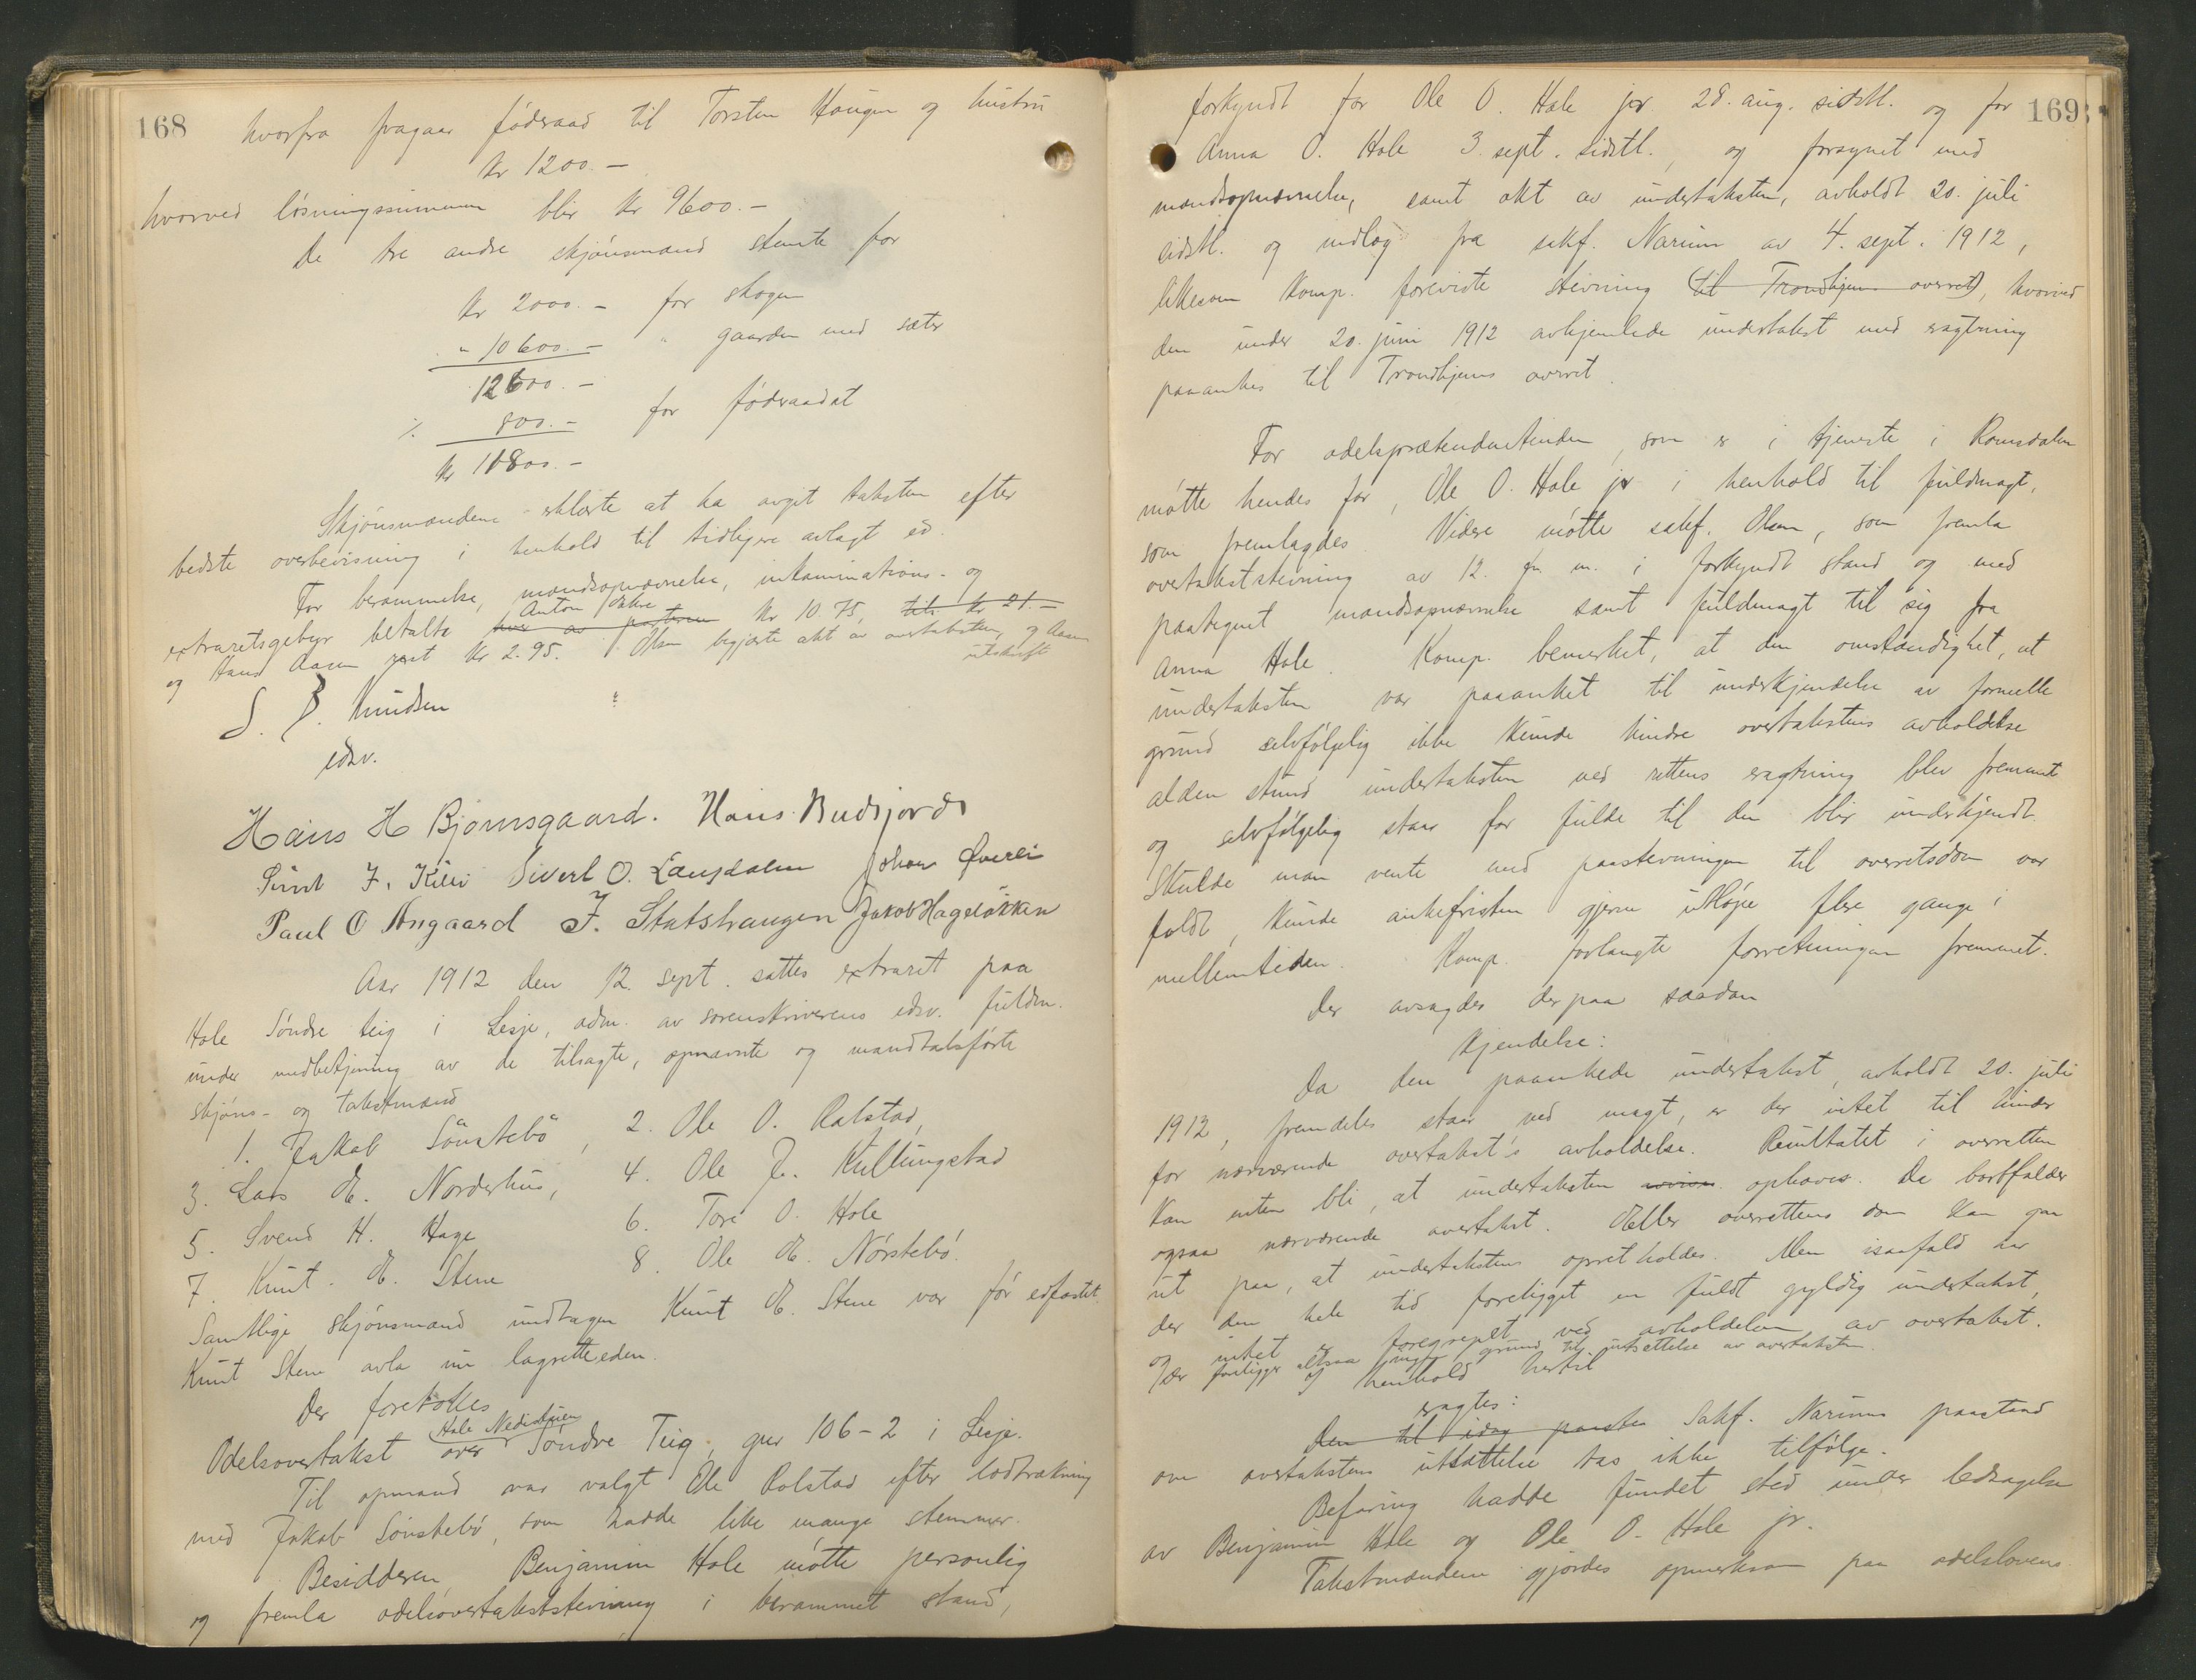 168
hvorfra fragaar føderaad til Torsten Haugen og hustru
kr 1200.-
hvorved løsningssummen blir kr 9600.-
De tre andre skjønsmænd stemte for
kr 2000.- for skogen
" 10600.- " gaarden med sæter
12600.-
÷ 800.- for føderaadet
kr 11800.-
Skjønsmændene erklærte at ha avgit taksten efter
bedste overbevisning i henhold til tidligere avlagt ed.
For berammelse, mandsopnævnelse, inkaminations- og
extraretsgebyr betalte hver av parterne Anton kr 10.75, tils. kr 21.-
og Hans Aasen resten kr 2.95. Olsen begjærte akt av overtaksten, og Aasen
utskrift
S. B. Knudsen
edsv.
Hans H Bjørnsgaard. Hans Budsjord
Siurd J. Kilen Sivert O. Langdalen Johan Øverli
Paul O Angaard J. Slatshaugen Jakob Hageløkken
Aar 1912 den 12. sept. sattes extraret paa
Hole Søndre teig i Lesje, adm. av sorenskriverens edsv. fuldm.
under medbetjening av de tilsagte, opnævnte og mandtalsførte
skjøns- og takstmænd
1. Jakob Sønstebø, 2. Ole O. Rolstad,
3. Lars E. Norderhus, 4. Ole J. Kullungstad
5. Svend H. Hage 6. Tore O. Hole
7. Knut E. Stene 8. Ole E. Nørstebø.
Samtlige skjønsmænd undtagen Knut E. Stene var før edfæstet.
Knut Stene avla nu lagretteeden.
Der foretokes
Odelsovertakst over Hole Nedistuen Søndre Teig, gnr 106-2 i Lesje.
Til opmand var valgt Ole Rolstad efter lodtrækning
med Jakob Sønstebø, som hadde like mange stemmer.
Besidderen, Benjamin Hole møtte personlig
og fremla odelsovertakststevning i berammet stand,
169
forkyndt for Ole O. Hole jr. 28. aug. sidstl. og for
Anna O. Hole 3. sept. sidstl., og forsynet med
mandsopnævnelse, samt akt av undertaksten, avholdt 20. juli
sidstl. og indlæg fra sakf. Narum av 4. sept. 1912,
likesom komp. foreviste stevning (til Trondhjems overret), hvorved
den under 20. juni 1912 avhjemlede undertakst med eragtning
paaankes til Trondhjems overret.
For odelsprætendentinden, som er i tjeneste i Romsdalen
møtte hendes far, Ole O. Hole jr i henhold til fuldmagt,
som fremlagdes. Videre møtte sakf. Olsen, som fremla
overtakststevning av 12. f. m. i forkyndt stand og med
paategnet mandsopnævnelse samt fuldmagt til sig fra
Anna Hole. Komp. bemerket, at den omstændighet, at
undertaksten var paaanket til underkjendelse av formelle
grund selvfølgelig ikke kunde hindre overtakstens avholdelse
alden stund undertaksten ved rettens eragtning blev fremmet
og selvfølgelig staar for fulde til den blir underkjendt.
Skulde man vente med paastevningen til overretsdom var
faldt, kunde ankefristen gjerne utløpe flere gange i
mellemtiden. Komp. forlangte forretningen fremmet.
Der avsagdes derpaa saadan
Kjendelse:
Da den paaankede undertakst, avholdt 20. juli
1912, fremdeles staar ved magt, er der intet til hinder
for nærværende overtakst's avholdelse. Resultatet i overretten
kan enten bli, at undertaksten opheves. Da bortfalder
ogsaa nærværende overtakst. Eller overrettens dom kan gaa
ut paa, at undertaksten opretholdes. Men isaafald har
der den hele tid foreligget en fuldt gyldig undertakst,
og intet er foregrepet ved avholdelsen av overtakst.
Der foreligger altsaa ingen grund til utsættelse av overtaksten.
I henhold hertil
eragtes:
Den til idag paasta Sakf. Narums paastand
om overtakstens utsættelse tas ikke tilfølge.
Befaring hadde fundet sted under ledsagelse
av Benjamin Hole og Ole O. Hole jr.
Takstmændene gjordes opmerksom paa odelslovens